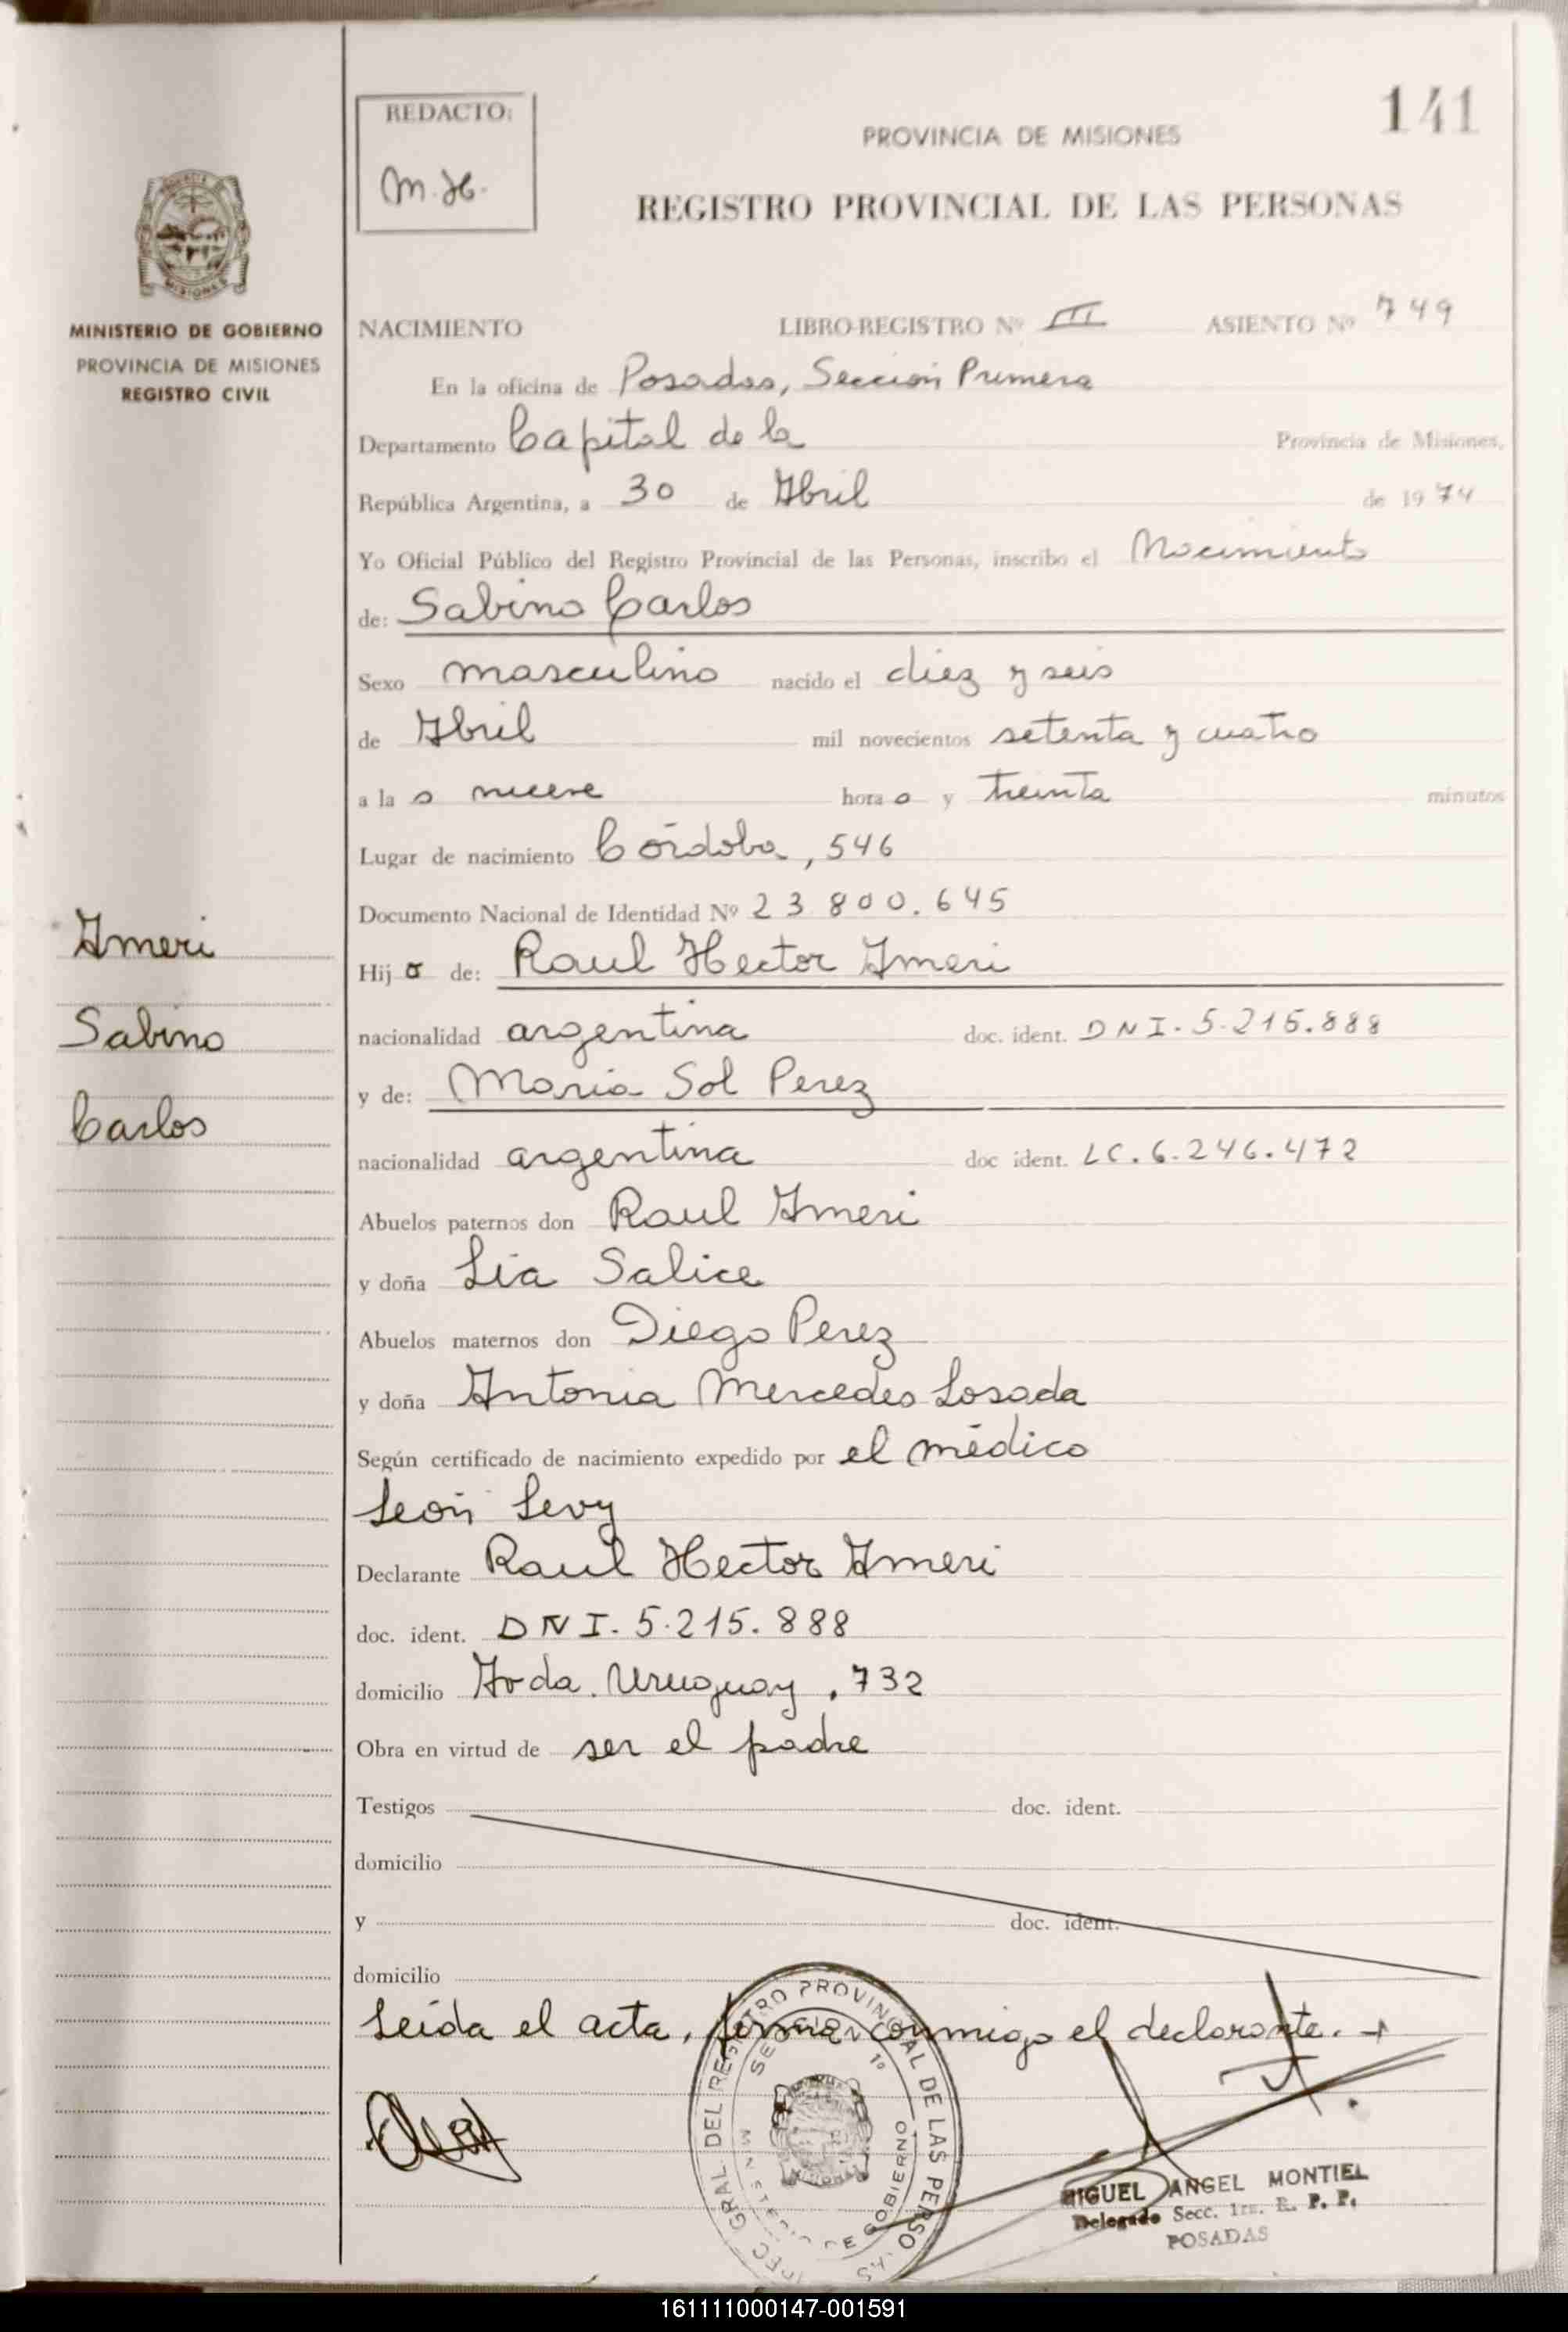 141
REDACTO:
M.H.
PROVINCIA DE MISIONES
REGISTRO PROVINCIAL DE LAS PERSONAS
MISIONES
MINISTERIO DE GOBIERNO
PROVINCIA DE MISIONES
REGISTRO CIVIL
NACIMIENTO LIBRO-REGISTRO Nº III ASIENTO Nº 749
En la oficina de Posadas, Sección Primera
Departamento Capital de la Provincia de Misiones,
República Argentina, a 30 de Abril de 1974
Yo Oficial Público del Registro Provincial de las Personas, inscribo el Nacimiento
de: Sabino Carlos
Sexo masculino nacido el diez y seis
de Abril mil novecientos setenta y cuatro
a la s nueve hora s y treinta minutos
Lugar de nacimiento Córdoba, 546
Documento Nacional de Identidad Nº 23 800.645
Ameri
Sabino
Carlos
Hij o de: Raul Hector Ameri
nacionalidad argentina doc. ident. DNI. 5.215.888
y de: Maria Sol Perez
nacionalidad argentina doc ident. LC. 6.246.472
Abuelos paternos don Raul Ameri
y doña Lia Salice
Abuelos maternos don Diego Perez
y doña Antonia Mercedes Losada
Según certificado de nacimiento expedido por el médico
León Levy
Declarante Raul Hector Ameri
doc. ident. DNI. 5.215.888
domicilio Avda. Uruguay, 732
Obra en virtud de ser el padre
Testigos doc. ident.
domicilio
y doc. ident.
domicilio
Leida el acta, firma conmigo el declarante.
GRAL. DEL REGISTRO PROVINCIAL DE LAS PERSO
SECCION 1º
GOBIERNO
MIGUEL ANGEL MONTIEL
Delegado Secc. 1ra. R. P. P.
POSADAS
161111000147-001591